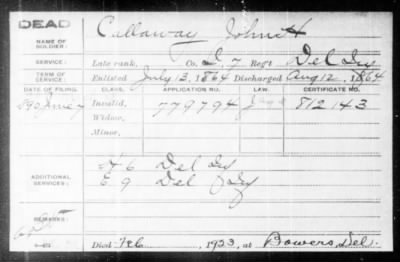 DEAD
NAME OF SOLDIER: Callaway John H
SERVICE: Late rank, Co. I, 7 Reg't Del Inf
TERM OF SERVICE: Enlisted July 13, 1864 Discharged Aug 12, 1864
DATE OF FILING. CLASS. APPLICATION NO. LAW. CERTIFICATE NO.
1890 June 7 Invalid, 779794 812143
Widow,
Minor,
ADDITIONAL SERVICES: 6 Del Inf
E 9 Del Inf
REMARKS:
Died Feb , 1933 at Bowers, Del.